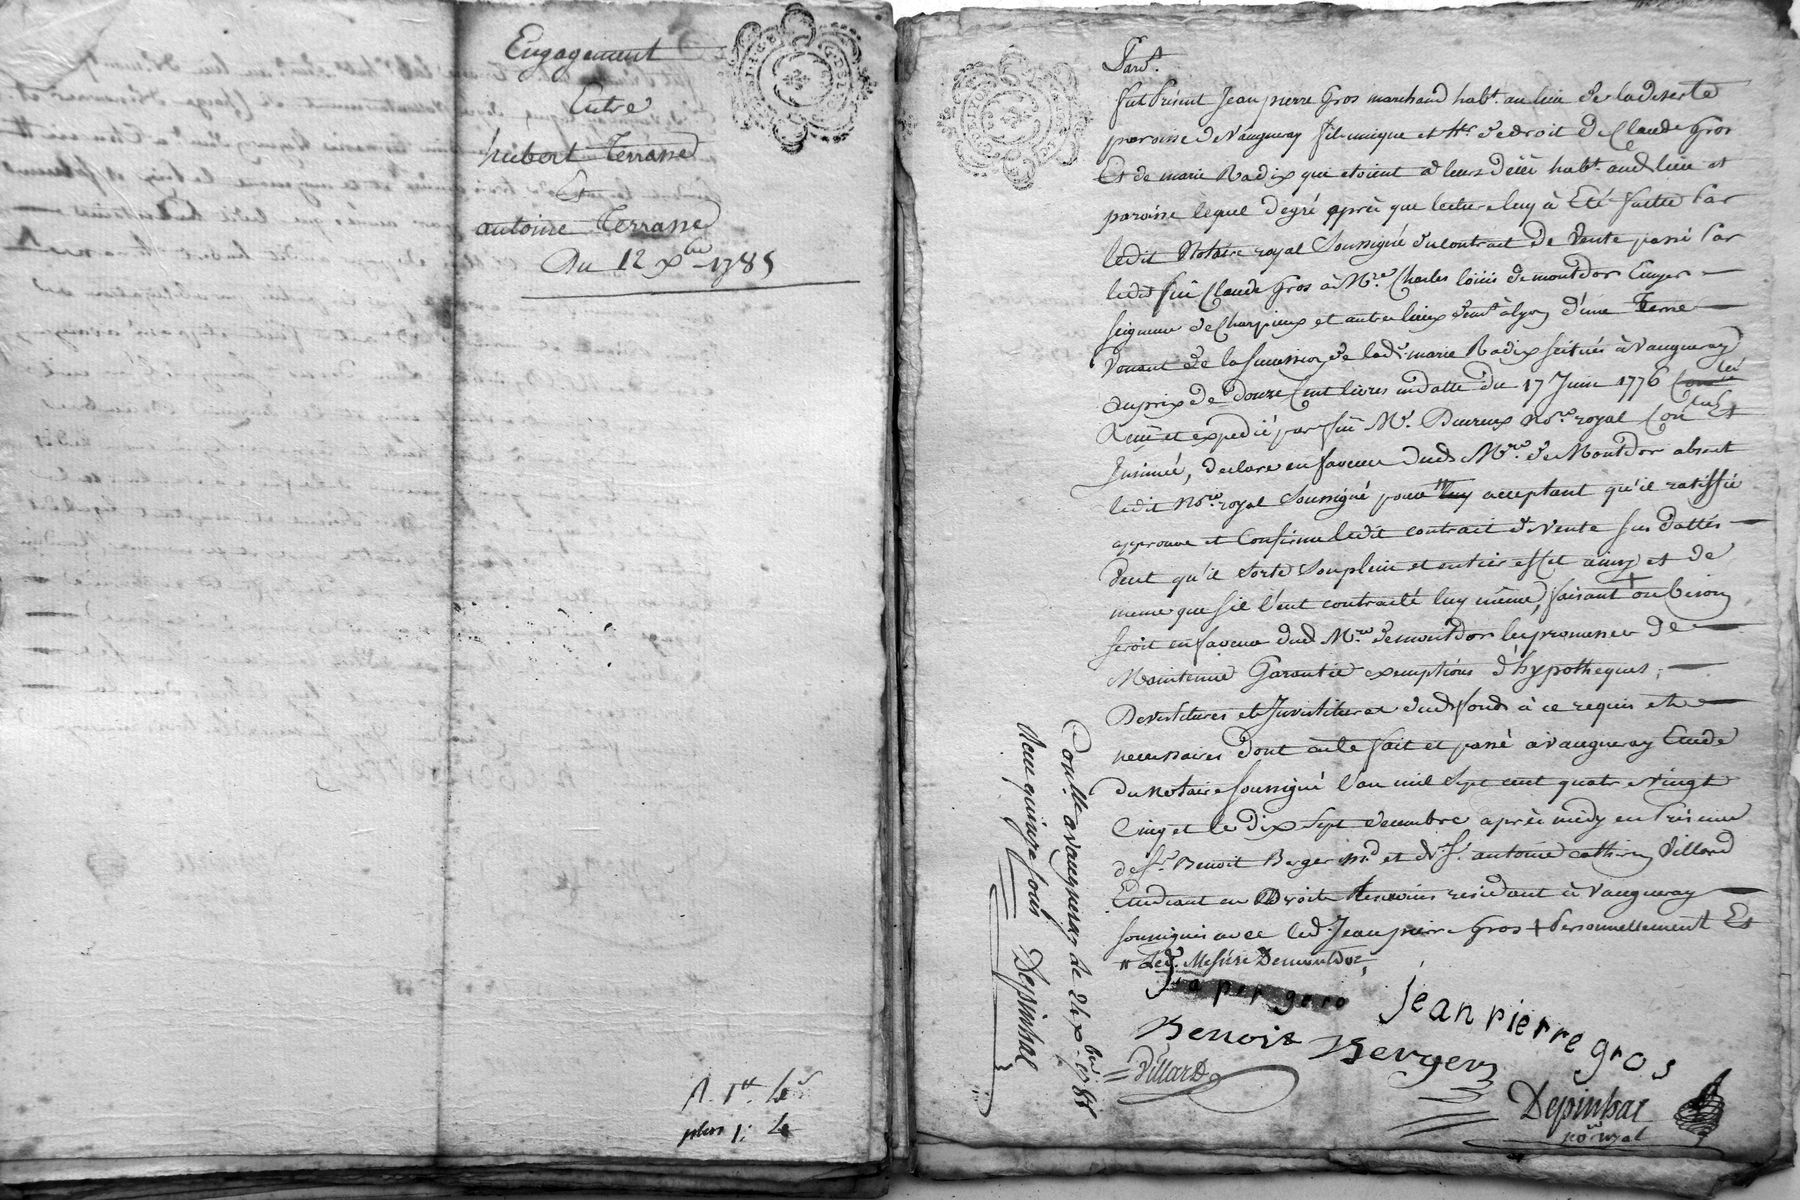 Engagement
Entre
hubert Terrasse
Et
antoine Terrasse
Du 12 xbre 1785
Pard.t
fut Présent Jean pierre Gros marchand habt. au lieu de ladeserte
paroisse de Vaugneray fils unique et her. de droit de Claude Gros
Et de marie Radix que etoient a leurs décéé habt. audt. lieu et
paroisse lequel degré après que lecture luy à Eté faitte Par
ledit Notaire royal Soussigné du contrait de Vente passé Par
ledit feu Claude Gros à Mre. Charles loüis demontdor Ecuyer
seigneur de Charpieux et autres lieux demt. à lyon d'une Terre
Venant de la succession de lade. marie Radix scituée à Vaugneray
au prix de douze Cent livres en datte du 17 Juin 1776
Reçu et expedié par feu Me. Notre royal Con.lé Et
Insinué, declare en faveur dudt. Mre. de Montdor absent
ledit Notre. royal Soussigné pour acceptant qu'il ratiffie
approuve et Confirme ledit contrait de Vente sus datté
Veut qu'il sorte son plein et entier effet ainsy et de
meme que s'il l'eut contraité luy même, faisant + ou besoin
seroit en faveur dudt. Mre. demontdor les promesses de
Maintenue Garantie exemptions d'hypotheques,
Devestitures et Investitures dudt. fonds à ce requis et
necessaires dont acte fait et passé à Vaugneray Etude
du Notaire soussigné l'an mil sept cent quatre Vingt
Cinq et le Dix Sept decembre après midy en Présence
de Sr. Benoit Berger md. et de Sr. antoine catherin Villard
Etudiant en Droit temoins residant à Vaugneray
soussignés avec ledt. Jean pierre Gros + Personnellement Et
" Ledt. Messire Demontdor
Jean pierre gros
Benoit Berger
Villard
Depinhac
no. royal
Con.lle a vaugneray le 24 xbre 1785
Reçu quinze sols Depinhac